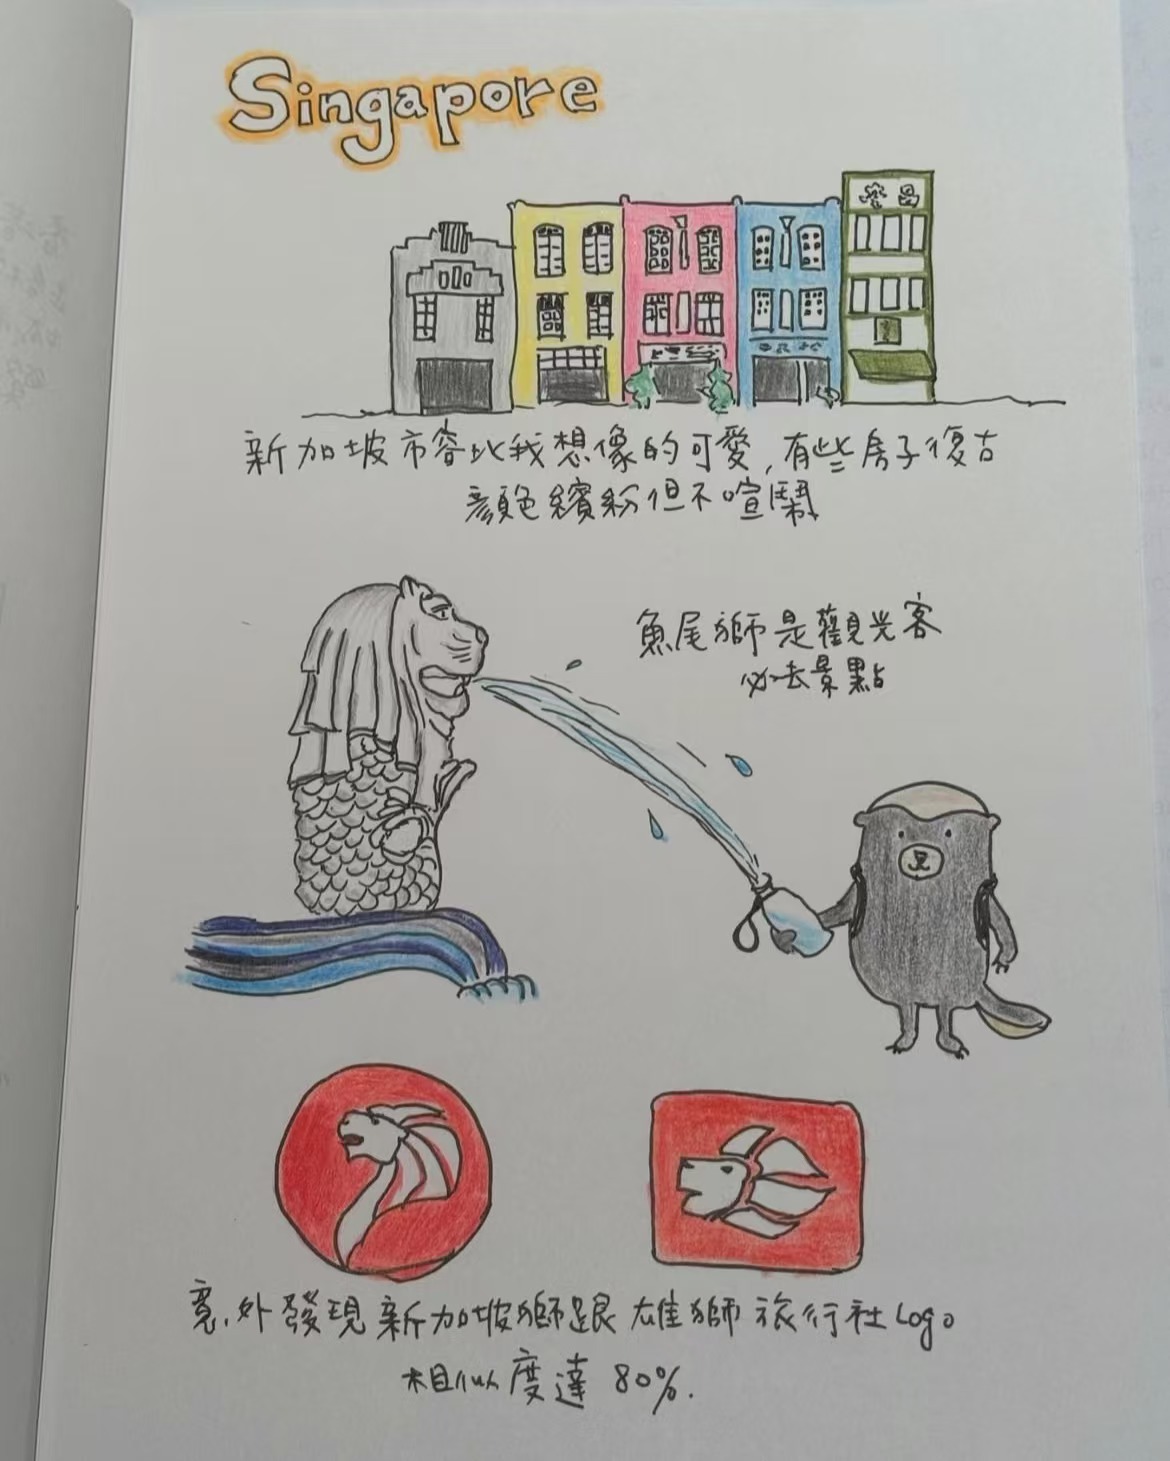 Singapore
新加坡市容比我想像的可愛,有些房子復古
顏色繽紛但不喧鬧
魚尾獅是觀光客
必去景點
意外發現新加坡獅跟雄獅旅行社Logo
相似度達80%.